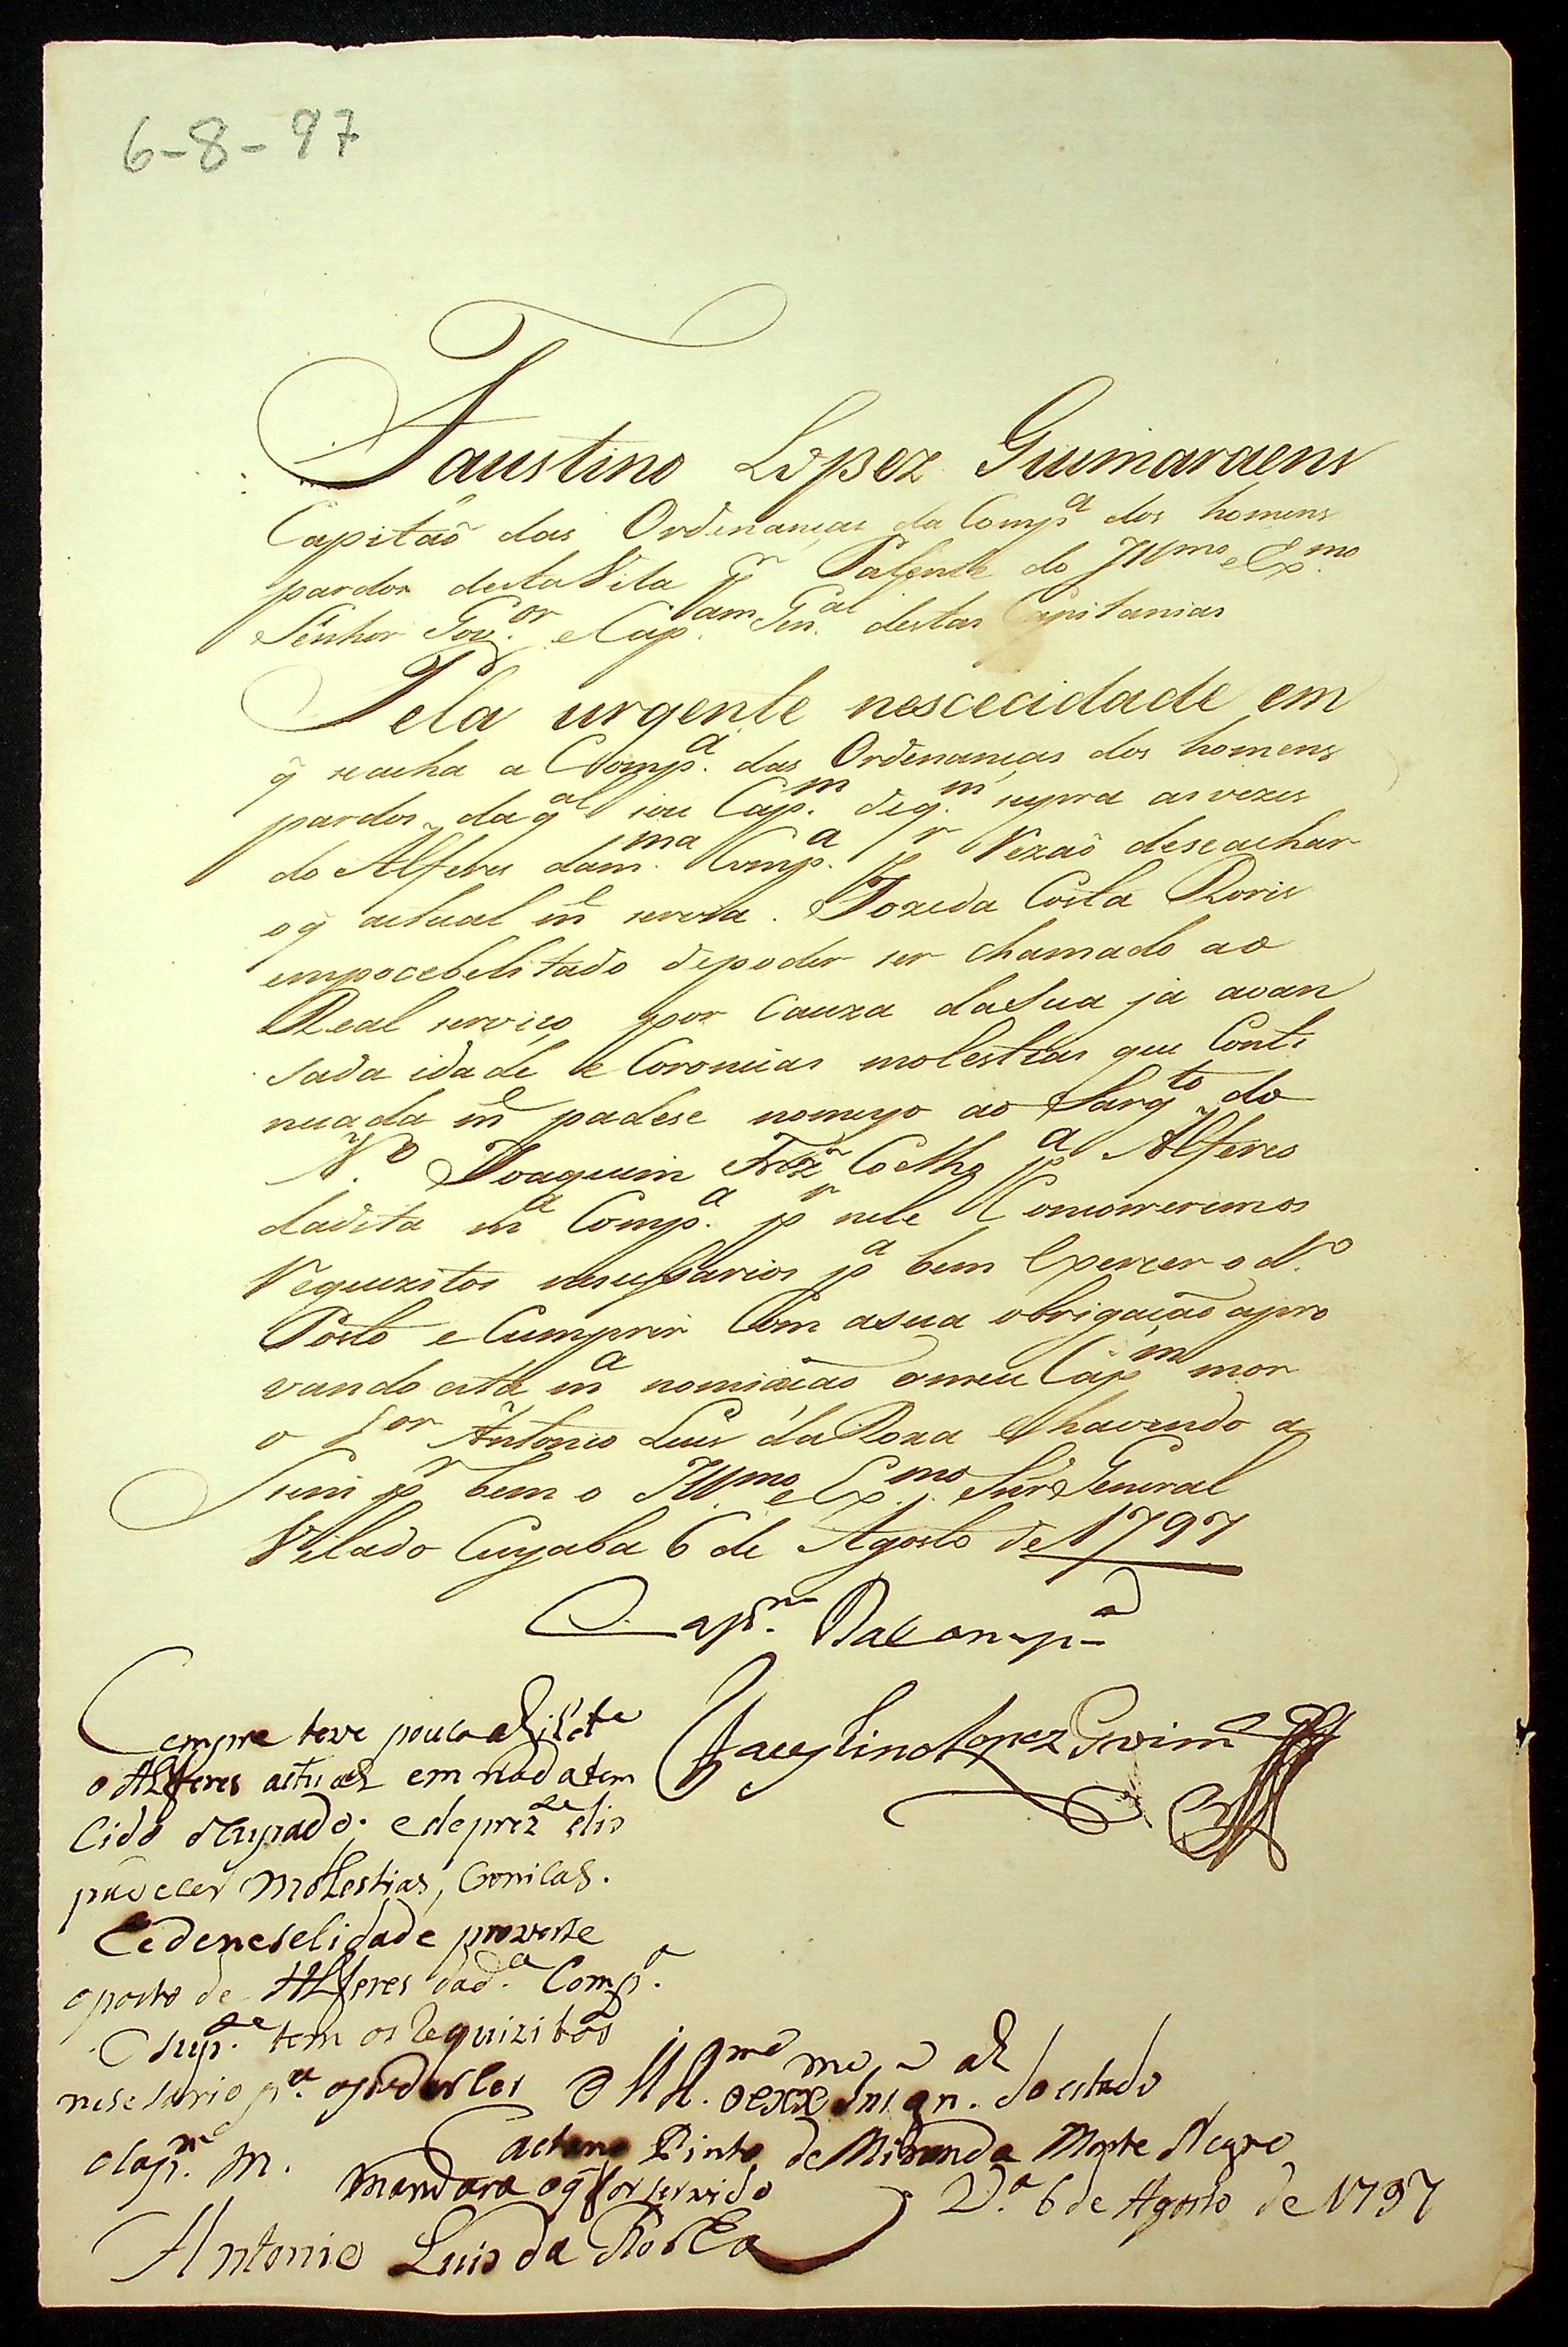 6-8-97
Faustino Lopez Guimaraens
Capitaõ das Ordenanças da Comp.ª dos homens
pardos desta Vila p.r Patente do Ill.mo e Ex.mo
Senhor Gov.or e Cap.am Gen.al destas Capitanias
Pela urgente nescecidade em
q̃ seacha a Comp.ª das Ordenanças dos homens
pardos daq.al sou Cap.m deq.m supra asvezes
do Alferes dam.ma Comp.ª p.r Rezaõ deseachar
oq̃ actual m.te servia. Jozeda Costa Roris
empocebelitado depoder ser chamado ao
Real serviço, por Cauza dasua já avan
sada idade e Coronicas molestias que Conti
nuada m.te padese nomeyo ao Sarg.to do
N.º Joaquim Frz Coelho p.ª Alferes
dadita m.ª Comp.ª p.r nele Concorreremos
Requezitos nesessarios p.ª bem Exercer o d.º
Posto e Cumprir Com asua obrigaçaõ apro
vando esta m.ª nomiaçaõ omeu Cap.m mor
o S.or Antonio Luis daRoxa e havendo a
sim p.r bem o Ill.mo e Ex.mo Snr General
Vilado Cuyaba 6 de Agosto de 1797
Cap.m DaComp.ª
Faustino Lopez Guim.es
Cempre teve pouca
o Alferes actual em nadatem
Cido ocupado; edeprez.te dis
padecer molestias, Cronicas.
Hedenesesidade proverse
oposto de Alferes dad.ª Comp.ª
O Sup.te tem os Requizitos
nesesario p.ª O Ill.mo oexx.mo Snr Gn.al do estado
oCap.m M. Caetano Pinto de Miranda Monte Negro
Mandara oq̃ for servido
V.ª 6 de Agosto de 1797
Antonio Luis da Rocha